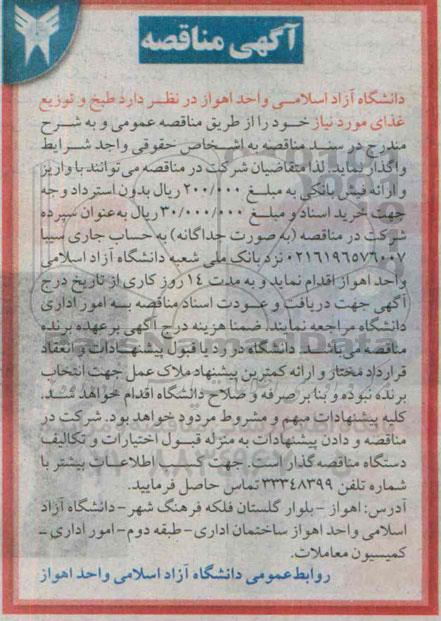 آگهی مناقصه
دانشگاه آزاد اسلامی واحد اهواز در نظر دارد طبخ و توزیع
غذای مورد نیاز خود را از طریق مناقصه عمومی و به شرح
مندرج در سند مناقصه به اشخاص حقوقی واجد شرایط
واگذار نماید. لذا متقاضیان شرکت در مناقصه می توانند با واریز
و ارائه فیش بانکی به مبلغ ۲۰۰/۰۰۰ ریال بدون استرداد وجه
جهت خرید اسناد و مبلغ ۳۰/۰۰۰/۰۰۰ ریال به عنوان سپرده
شرکت در مناقصه (به صورت جداگانه) به حساب جاری سیبا
۰۲۱۶۱۹۶۵۷۶۰۰۷ نزد بانک ملی شعبه دانشگاه آزاد اسلامی
واحد اهواز اقدام نماید و به مدت ۱۴ روز کاری از تاریخ درج
آگهی جهت دریافت و عودت اسناد مناقصه به امور اداری
دانشگاه مراجعه نمایند. ضمنا هزینه درج آگهی بر عهده برنده
مناقصه می باشد. دانشگاه در رد یا قبول پیشنهادات و انعقاد
قرارداد مختار و ارائه کمترین پیشنهاد ملاک عمل جهت انتخاب
برنده نبوده و بنا بر صرفه و صلاح دانشگاه اقدام خواهد شد.
کلیه پیشنهادات مبهم و مشروط مردود خواهد بود. شرکت در
مناقصه و دادن پیشنهادات به منزله قبول اختیارات و تکالیف
دستگاه مناقصه گذار است. جهت کسب اطلاعات بیشتر با
شماره تلفن ۳۳۳۴۸۳۹۹ تماس حاصل فرمایید.
آدرس: اهواز - بلوار گلستان فلکه فرهنگ شهر - دانشگاه آزاد
اسلامی واحد اهواز ساختمان اداری - طبقه دوم - امور اداری -
کمیسیون معاملات.
روابط عمومی دانشگاه آزاد اسلامی واحد اهواز